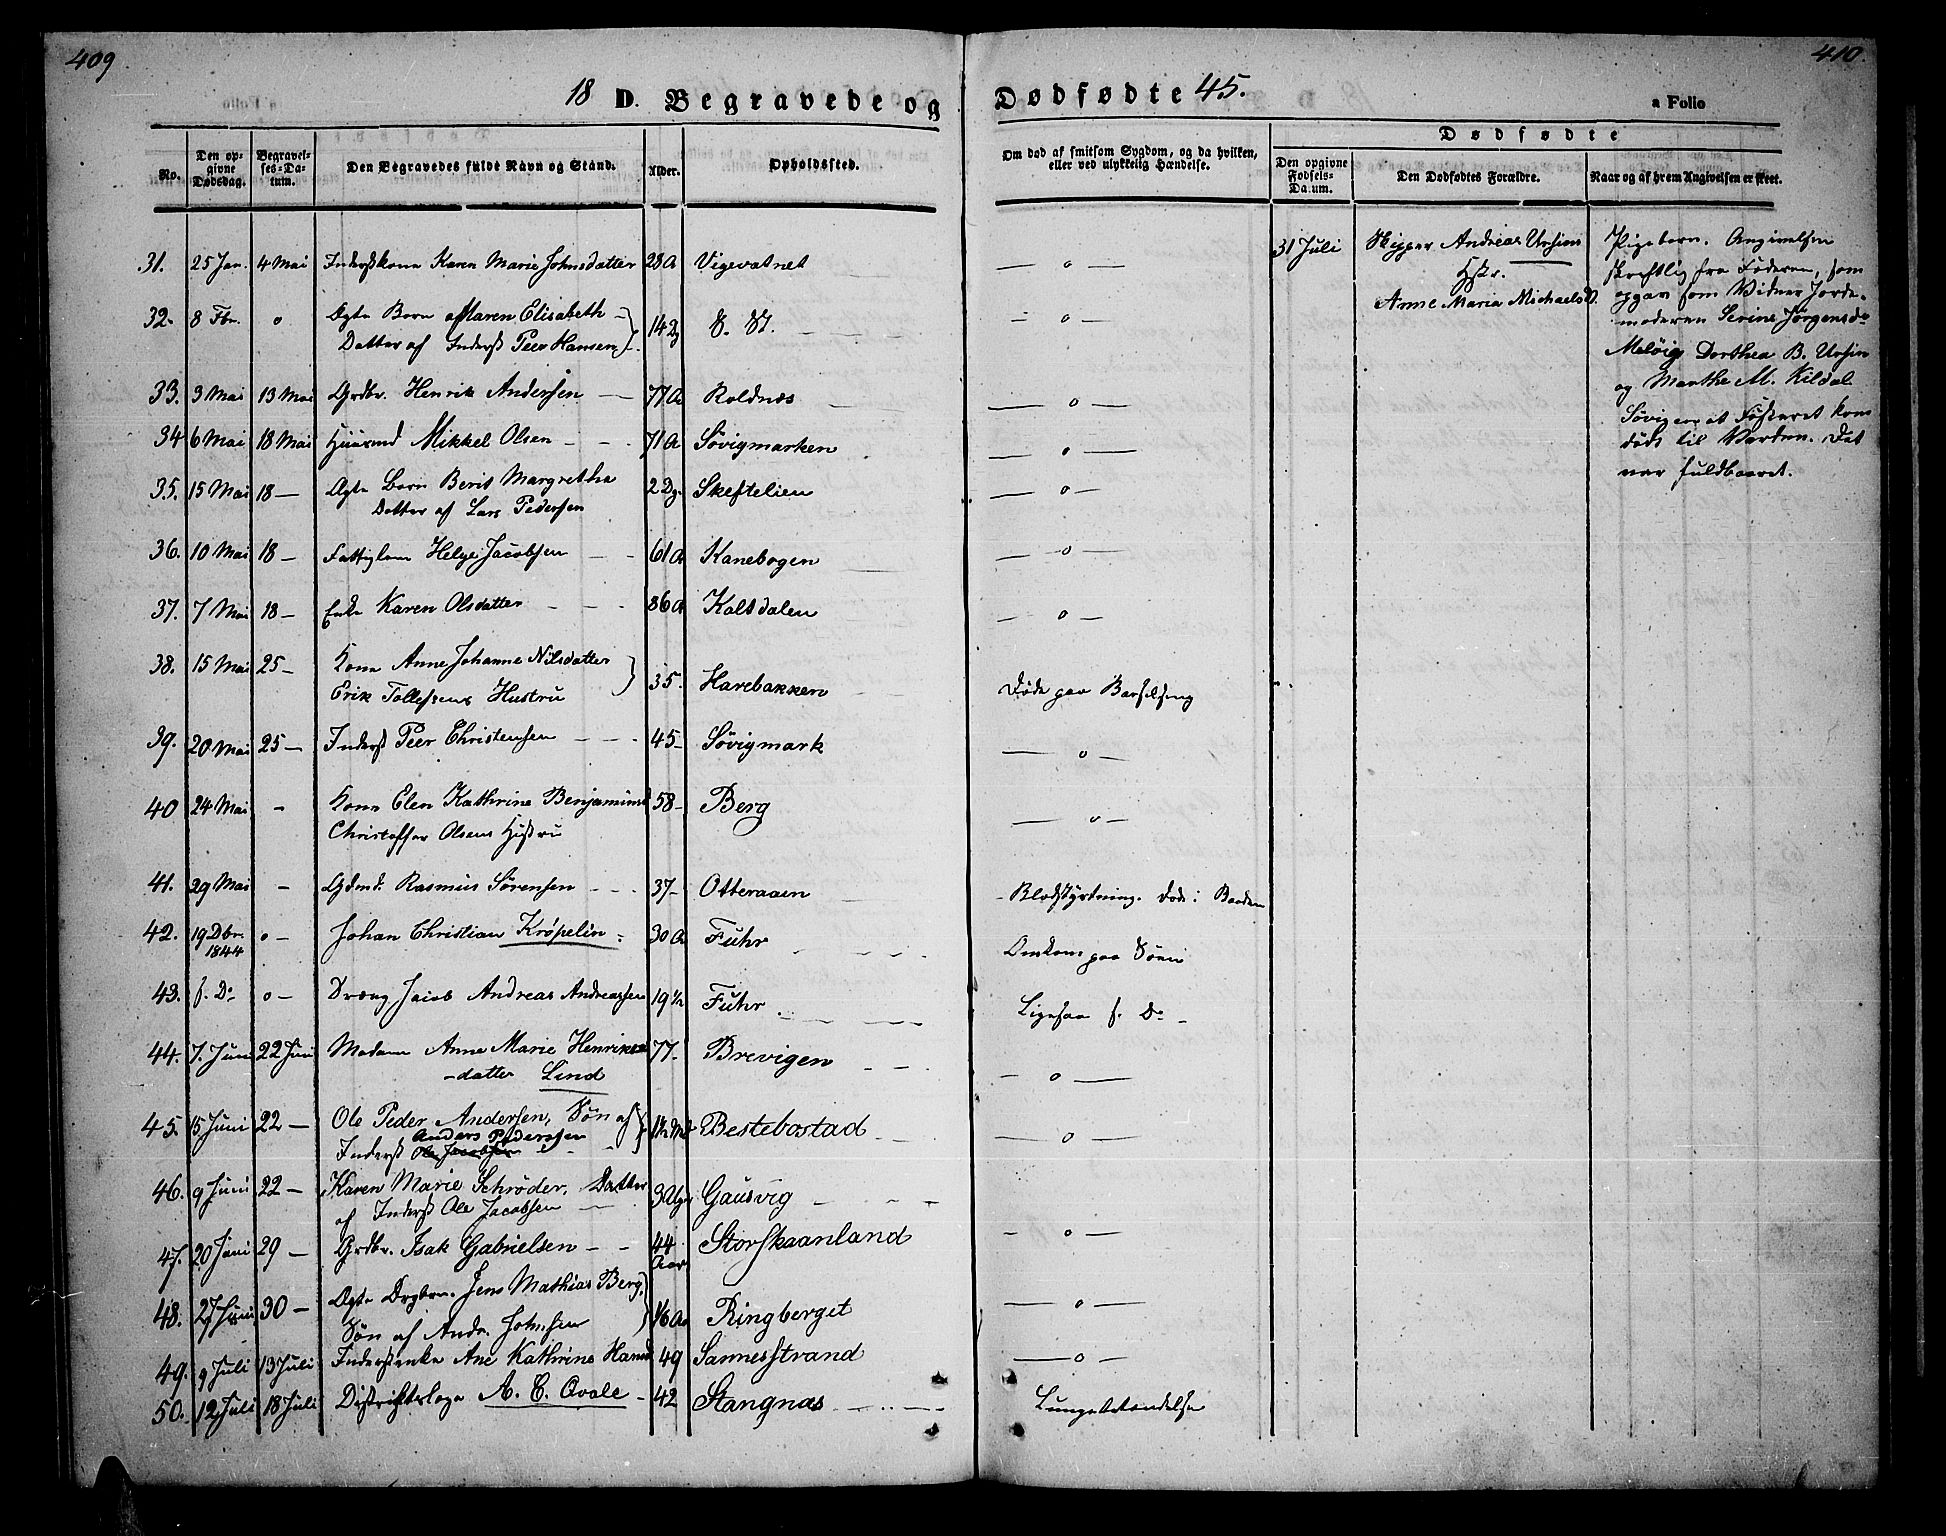 409
410.
18 D. Begravede og Dødfødte 45.
a Folio
No.
Den opgivne Dødsdag.
Begravelses-Datum.
Den Begravedes fulde Navn og Stand.
Alder.
Opholdssted.
Om død af smitsom Sygdom, og da hvilken, eller ved ulykkelig Hændelse.
Dødfødte
Den opgivne Fødsels-Datum.
Den Dødfødtes Forældre.
Naar og af hvem Angivelsen er skeet.
31. 25 Jan. 4 Mai Inderstkone Karen Marie Johnsdatter 28 A Vigevatnet — o —
32. 8 Fbr. o Ægte Barn Maren Elisabeth — 14 Dg — o —
Datter af Inderst Peer Hansen
33. 3 Mai 13 Mai Grdbr. Henrik Andersen — 77 A Roldnæs — o —
34 6 Mai 18 Mai Huusmd Mikkel Olsen - - 71 A Søvigmarken — o —
35. 15 Mai 18 — Ægte Barn Berit Margretha 2 Dg. Skeftelien — o —
Datter af Lars Pedersen
36. 10 Mai 18 — Fattiglem Helge Jacobsen 61 A Kanebogen — o —
37. 7 Mai 18 — Enke Karen Olsdatter - - - 86 A Kolsdalen — o —
38. 15 Mai 25 — Kone Anne Johanne Nilsdatter 35. Harebakken Døde paa Barselseng
Erik Tollefsens Hustru
39. 20 Mai 25 — Inderst Peer Christensen - - - 45 — Søvigmark — o —
40 24 Mai - Kone Elen Kathrine Benjaminsd 58 — Berg — o —
Christoffer Olsens Hustru
41. 29 Mai - Gdmd. Rasmus Sørensen - - - 37 — Otteraaen - Blodstyrtning. Døde i Baaden
42. 19 Dbr. 1844 o — Johan Christian Krøpelin - 30 A Fuhr Omkom paa Søen
43. f. Do o — Dreng Jacob Andreas Andreassen 19 ½ Fuhr Ligesaa f. Do -
44. 7. Juni 22 Juni Madame Anne Marie Henriks- 77 - Brevigen — o —
-datter Lind
45. 15 Juni 22 — Ole Peder Andersen, Søn af Bestebostad — o —
Anders Pedersen
Inderst Ole Jacobsen
46. 9 Juni 22 — Karen Marie Schrøder, Datter 3 Uger Gausvig
af Inderst Ole Jacobsen
47. 20 Juni 29 — Grdbr. Isak Gabrielsen - - 44 Aar Storskaanland — o —
48. 27 Juni 30 — Ægte Drgbrn. Jens Mathias Berg, Ringberget — o —
Søn af Andr. Johnsen
49. 9 Juli 13 Juli Inderstenke Ane Kathrine Hansd 49 Sannesstrand — o —
50. 12 Juli 18 Juli Districtslæge A. C. Qvale - 42 Stangnæs Lungebetændelse
31 Juli
Andreas Ursin
Hstr.
Anne Maria MichaelsD.
Pigebarn. Angivelsen
skriftlig fra Faderen, som
opgav som Vidner Jorde-
moderen Serine Jørgensdr
Meløig Dorthea B. Ursin
og Marthe M. Kildal
Søvigen at Fosteret kom
dødt til Verden. Det
var fuldbaaret.